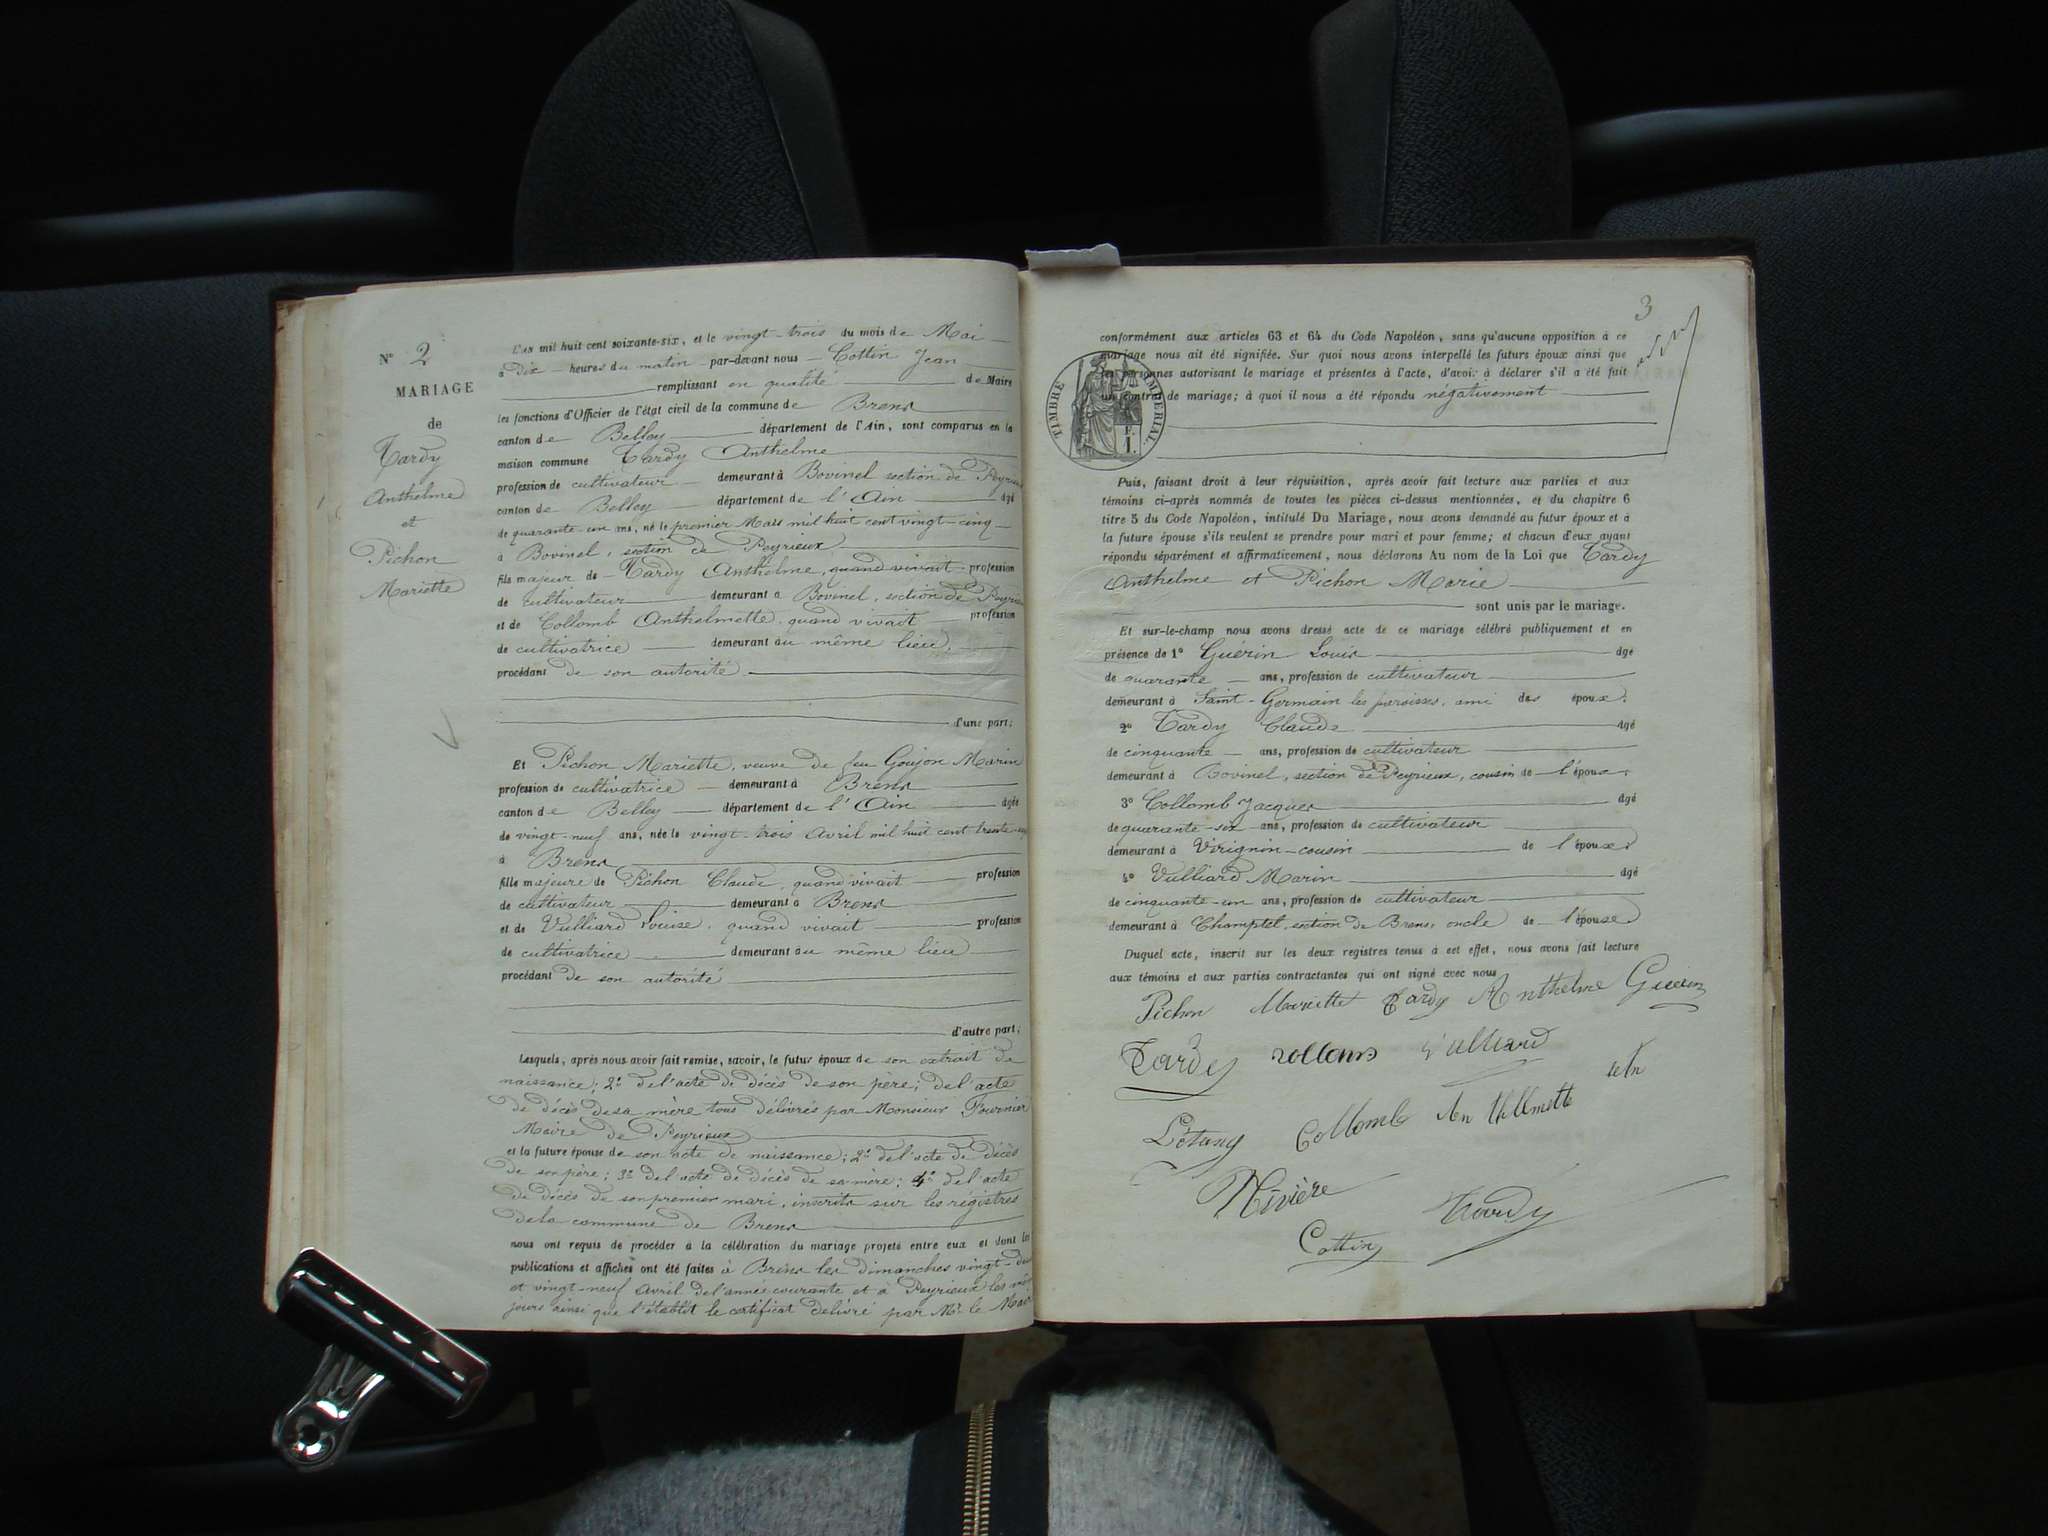 N° 2
MARIAGE
de
Tardy
Anthelme
et
Pichon
Mariette
L'an mil huit cent soixante-six, et le vingt-trois du mois de Mai
à dix heures du matin par-devant nous Cottin Jean
remplissant en qualité de Maire
les fonctions d'Officier de l'état civil de la commune de Brens
canton de Belley département de l'Ain, sont comparus en la
maison commune Tardy Anthelme
profession de cultivateur demeurant à Bovinel section de Peyrieux
canton de Belley département de l'Ain âgé
de quarante-un ans, né le premier Mars mil huit cent vingt-cinq
à Bovinel, section de Peyrieux
fils majeur de Tardy Anthelme, quand vivait profession
de cultivateur demeurant à Bovinel, section de Peyrieu
et de Collomb Anthelmette, quand vivait profession
de cultivatrice demeurant au même lieu,
procédant de son autorité
d'une part;
Et Pichon Mariette, veuve de feu Goujon Marin
profession de cultivatrice demeurant à Brens
canton de Belley département de l'Ain âgée
de vingt-neuf ans, née le vingt-trois Avril mil huit cent trente-
à Brens
fille majeure de Pichon Claude, quand vivait profession
de cultivateur demeurant à Brens
et de Vulliard Louise, quand vivait profession
de cultivatrice demeurant au même lieu
procédant de son autorité
d'autre part;
Lesquels, après nous avoir fait remise, savoir, le futur époux de son extrait de
naissance; 2° de l'acte de décès de son père; de l'acte
de décès de sa mère tous délivrés par Monsieur Fournier
Maire de Peyrieux
et la future épouse de son acte de naissance; 2° de l'acte de décès
de son père; 3° de l'acte de décès de sa mère; 4° de l'acte
de décès de son premier mari, inscrits sur les régistres
de la commune de Brens
nous ont requis de procéder à la célébration du mariage projeté entre eux et dont les
publications et affiches ont été faites à Brens les dimanches vingt-deux
et vingt-neuf Avril de l'année courante et à Peyrieux les mêm
jours ainsi que l'établit le certificat délivré par Mr. le Maire
3
conformément aux articles 63 et 64 du Code Napoléon, sans qu'aucune opposition à ce
mariage nous ait été signifiée. Sur quoi nous avons interpellé les futurs époux ainsi que
les personnes autorisant le mariage et présentes à l'acte, d'avoir à déclarer s'il a été fait
un contrat de mariage; à quoi il nous a été répondu négativement
TIMBRE IMPÉRIAL.
E.
1.
Puis, faisant droit à leur réquisition, après avoir fait lecture aux parties et aux
témoins ci-après nommés de toutes les pièces ci-dessus mentionnées, et du chapitre 6
titre 5 du Code Napoléon, intitulé Du Mariage, nous avons demandé au futur époux et à
la future épouse s'ils veulent se prendre pour mari et pour femme; et chacun d'eux ayant
répondu séparément et affirmativement, nous déclarons Au nom de la Loi que Tardy
Anthelme et Pichon Marie
sont unis par le mariage.
Et sur-le-champ nous avons dressé acte de ce mariage célébré publiquement et en
présence de 1° Guérin Louis âgé
de quarante ans, profession de cultivateur
demeurant à Saint-Germain les paroisses, ami des époux.
2° Tardy Claude âgé
de cinquante ans, profession de cultivateur
demeurant à Bovinel, section de Peyrieux, cousin de l'époux.
3° Collomb Jacques âgé
de quarante-six ans, profession de cultivateur
demeurant à Virignin cousin de l'époux.
4° Vulliard Marin âgé
de cinquante-un ans, profession de cultivateur
demeurant à Champtel, section de Brens, oncle de l'épouse
Duquel acte, inscrit sur les deux registres tenus à cet effet, nous avons fait lecture
aux témoins et aux parties contractantes qui ont signé avec nous
Pichon Mariette Tardy Anthelme Guerin
Tardy collomb Vulliard
L'étang Collomb Anthelmette
Rivière
Cottin Tardy